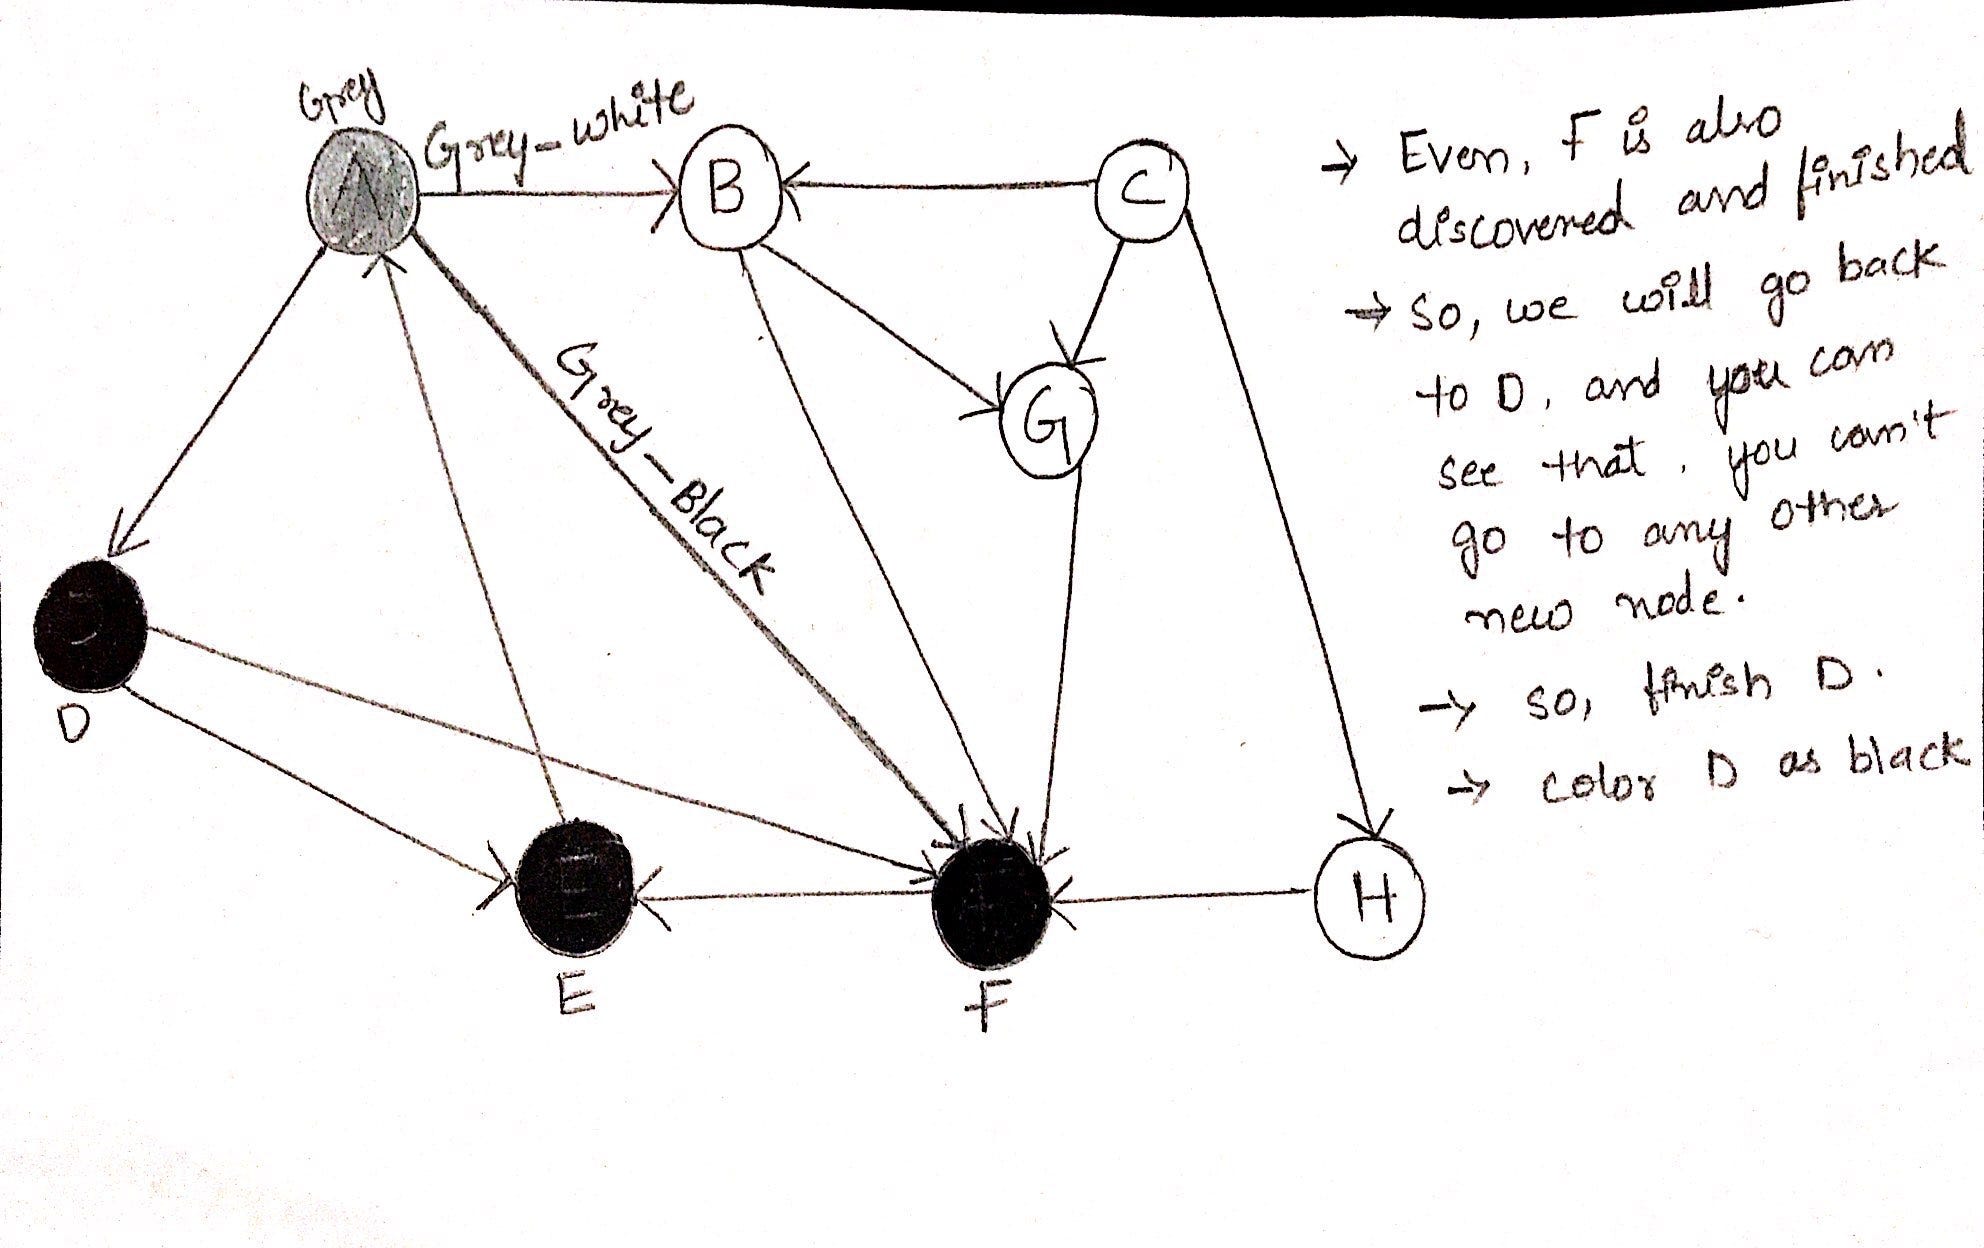 Grey
Grey-white
A
B
C
Grey-Black
G
D
E
F
H
→ Even, F is also
discovered and finished
→ So, we will go back
to D, and you can
see that, you can't
go to any other
new node.
→ so, finish D.
→ color D as black